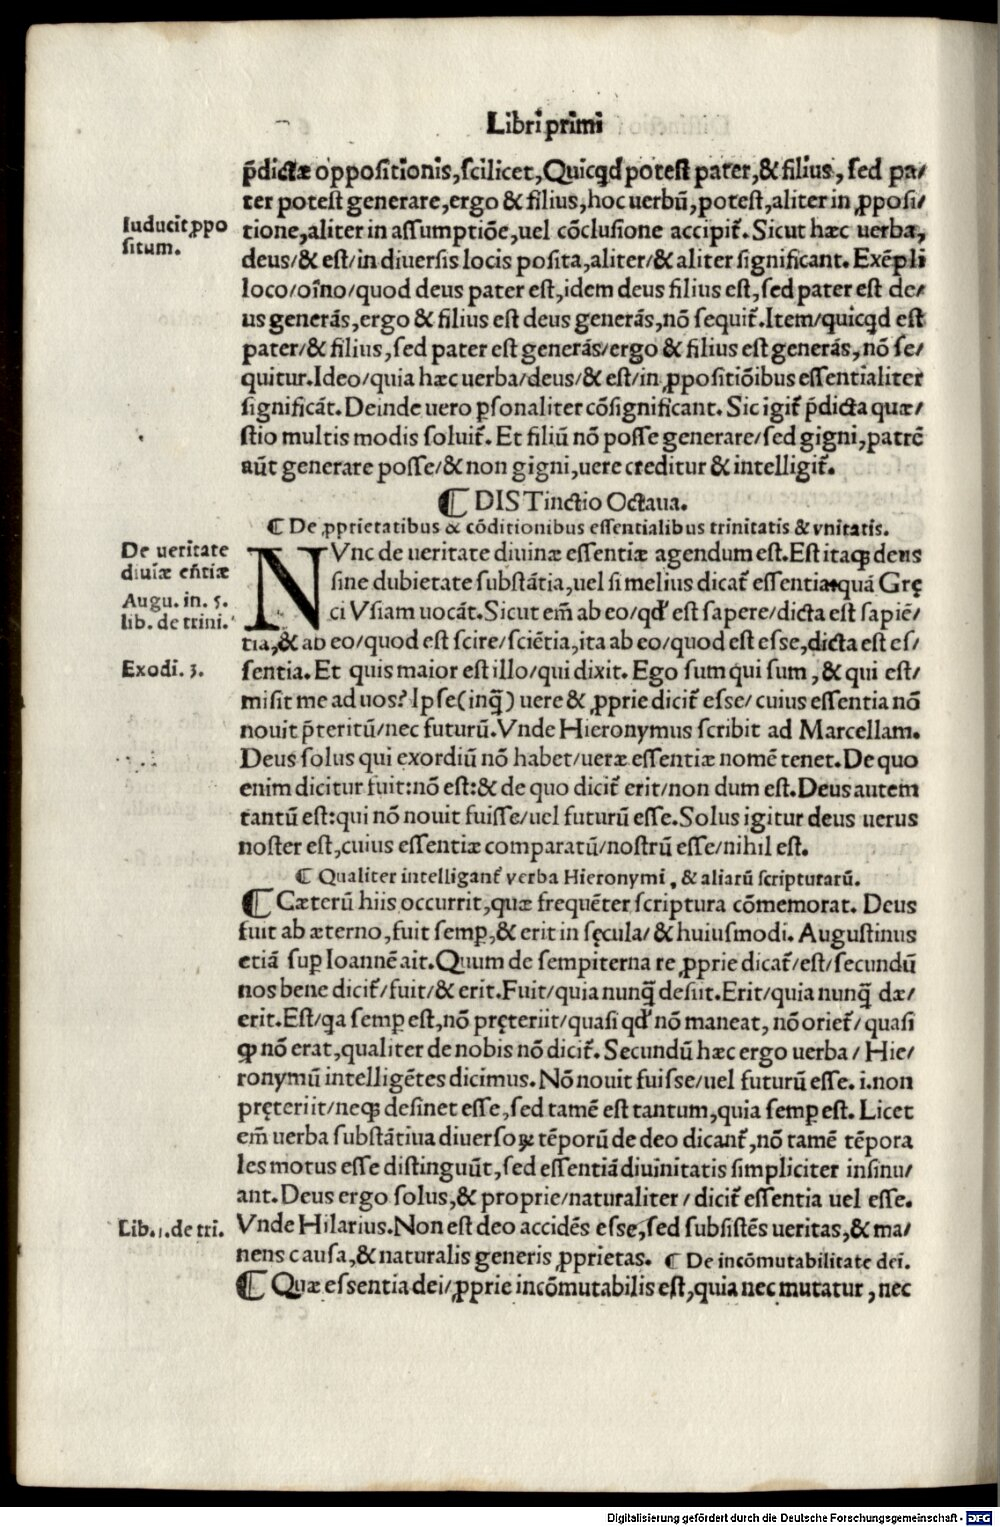 Libri primi
p̄dictæ oppositionis, scilicet, Quicq̇d potest pater, & filius, sed pa/
ter potest generare, ergo & filius, hoc uerbū, potest, aliter in ꝓposi/
Iuducit ꝓpo
situm.
tione, aliter in assumptiōe, uel cōclusione accipit᷑. Sicut hæc uerba,
deus/& est/in diuersis locis posita, aliter/& aliter significant. Exēpli
loco/oīno/quod deus pater est, idem deus filius est, sed pater est de/
us generās, ergo & filius est deus generās, nō sequit᷑. Item/quicq̇d est
pater/& filius, sed pater est generās/ergo & filius est generās, nō se/
quitur. Ideo/quia hæc uerba/deus/& est/in ꝓpositiōibus essentialiter
significāt. Deinde uero ꝑsonaliter cōsignificant. Sic igit᷑ p̄dicta quæ/
stio multis modis soluit᷑. Et filiū nō posse generare/sed gigni, patrē
aūt generare posse/& non gigni, uere creditur & intelligit᷑.
¶ DISTinctio Octaua.
¶ De ꝓprietatibus & cōditionibus essentialibus trinitatis & vnitatis.
De ueritate
diuiæ eñtiæ
Augu. in. 5.
lib. de trini.
NVnc de ueritate diuinæ essentiæ agendum est. Est itaqꝫ deus
sine dubietate substātia, uel si melius dicat᷑ essentia, quā Grę
ci Vsiam uocāt. Sicut em̄ ab eo/qđ est sapere/dicta est sapiē/
tia, & ab eo/quod est scire/sciētia, ita ab eo/quod est esse, dicta est es/
Exodi. 3.
sentia. Et quis maior est illo/qui dixit. Ego sum qui sum, & qui est/
misit me ad uos? Ipse (inq̄) uere & ꝓprie dicit᷑ esse/cuius essentia nō
nouit p̄teritū/nec futurū. Vnde Hieronymus scribit ad Marcellam.
Deus solus qui exordiū nō habet/ueræ essentiæ nomē tenet. De quo
enim dicitur fuit: nō est: & de quo dicit᷑ erit/non dum est. Deus autem
tantū est: qui nō nouit fuisse/uel futurū esse. Solus igitur deus uerus
noster est, cuius essentiæ comparatū/nostrū esse/nihil est.
¶ Qualiter intelligant᷑ verba Hieronymi, & aliarū scripturarū.
¶ Cæterū hiis occurrit, quæ frequēter scriptura cōmemorat. Deus
fuit ab æterno, fuit semꝑ, & erit in sęcula/& huiusmodi. Augustinus
etiā suꝑ Ioannē ait. Quum de sempiterna re ꝓprie dicat᷑/est/secundū
nos bene dicit᷑/fuit/& erit. Fuit/quia nunq̄ desiit. Erit/quia nunq̄ dæ/
erit. Est/qa semꝑ est, nō pręteriit/quasi qđ nō maneat, nō oriet᷑/quasi
ꝙ nō erat, qualiter de nobis nō dicit᷑. Secundū hæc ergo uerba/Hie/
ronymū intelligētes dicimus. Nō nouit fuisse/uel futurū esse. i. non
pręteriit/neqꝫ desinet esse, sed tamē est tantum, quia semꝑ est. Licet
em̄ uerba substātiua diuersoꝝ tēporū de deo dicant᷑, nō tamē tēpora
les motus esse distinguūt, sed essentiā diuinitatis simpliciter insinu/
ant. Deus ergo solus, & proprie/naturaliter/dicit᷑ essentia uel esse.
Lib. 1. de tri.
Vnde Hilarius. Non est deo accidēs esse, sed subsistēs ueritas, & ma/
nens causa, & naturalis generis ꝓprietas. ¶ De incōmutabilitate dei.
¶ Quæ essentia dei/ꝓprie incōmutabilis est, quia nec mutatur, nec
Digitalisierung gefördert durch die Deutsche Forschungsgemeinschaft - DFG